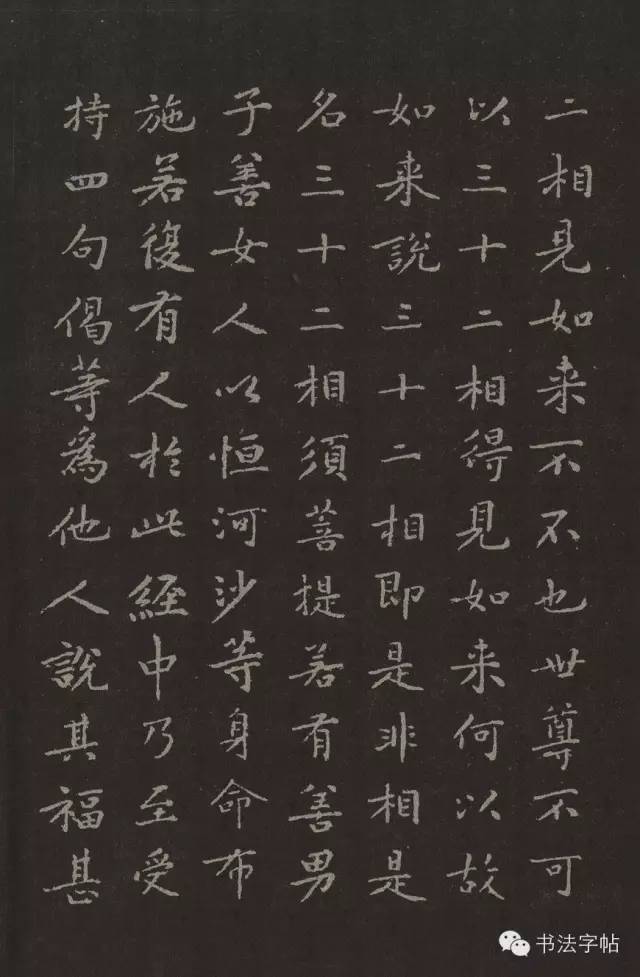 二相見如来不不也世尊不可
以三十二相得見如来何以故
如来說三十二相即是非相是
名三十二相須菩提若有善男
子善女人以恒河沙等身命布
施若復有人於此經中乃至受
持四句偈等為他人說其福甚
书法字帖